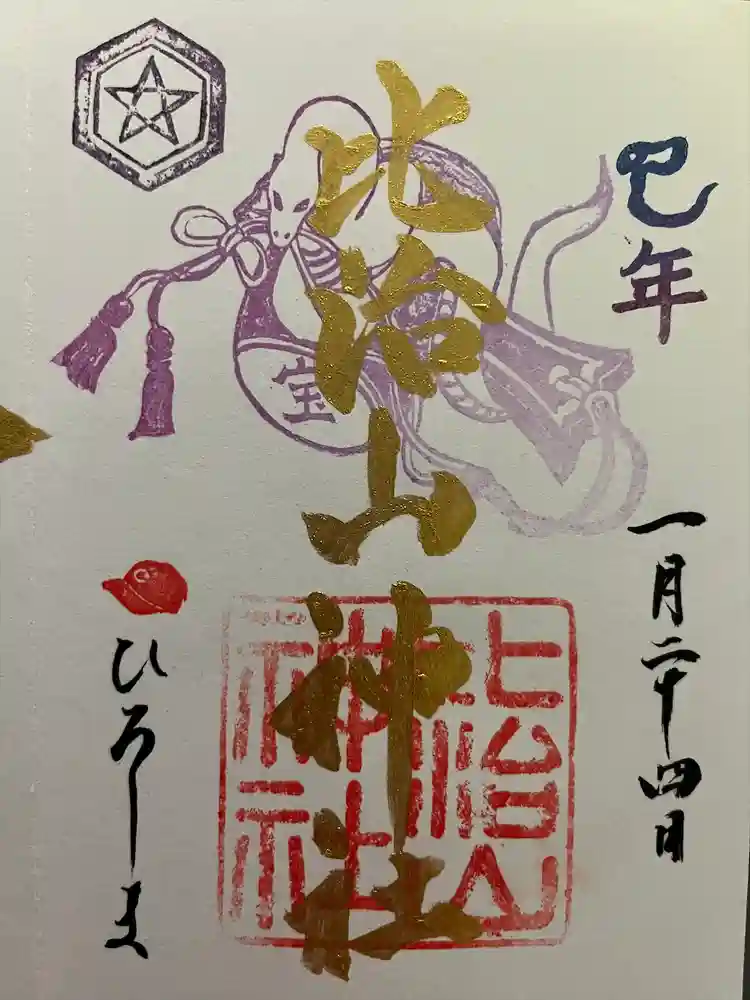 巳年
一月二十四日
比治山神社
宝
比治山
神社
ひろしま
C